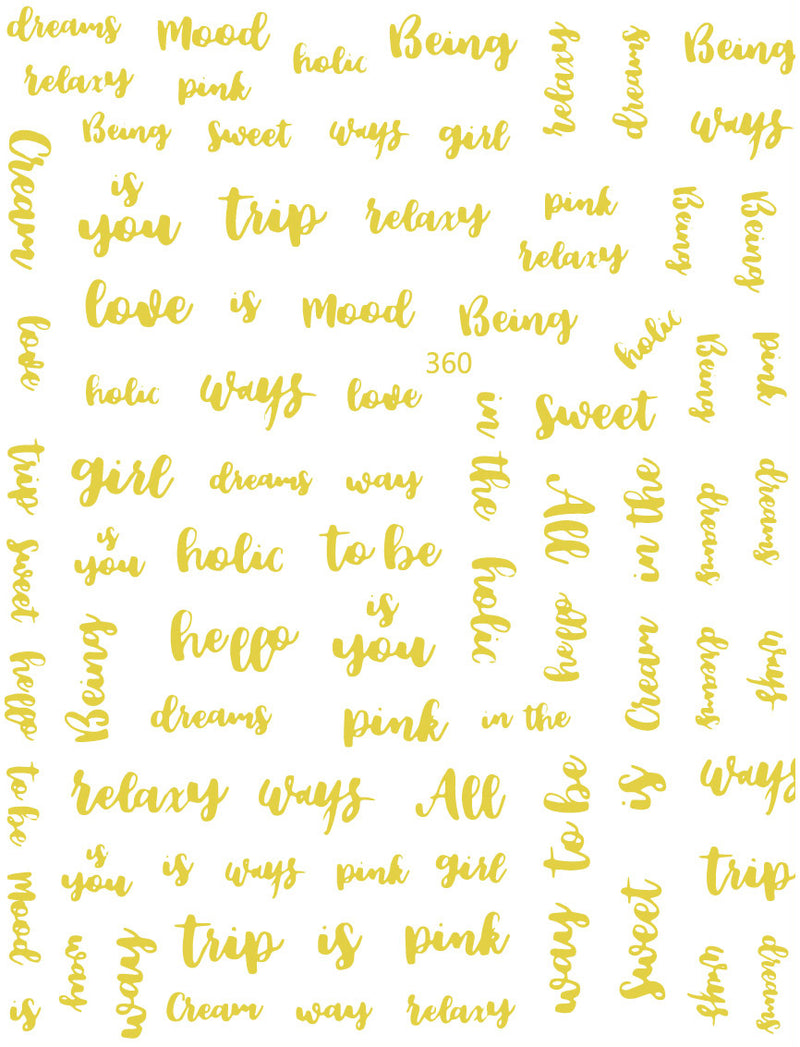 dreams
Mood
holic
Being
relaxy
dreams
Being
relaxy
pink
Being
sweet
ways
girl
ways
Cream
is
you
trip
relaxy
pink
relaxy
Being
Being
love
is
Mood
Being
holic
love
holic
ways
love
360
in the
sweet
Being
pink
trip
girl
dreams
way
All
in the
dreams
dreams
sweet
is
you
holic
to be
holic
hello
hello
Being
hello
is
you
Cream
dreams
ways
dreams
pink
in the
to be
relaxy
ways
All
way to be
is
ways
Mood
is
you
is
ways
pink
girl
sweet
trip
way
way
trip
is
pink
ways
dreams
is
Cream
way
relaxy